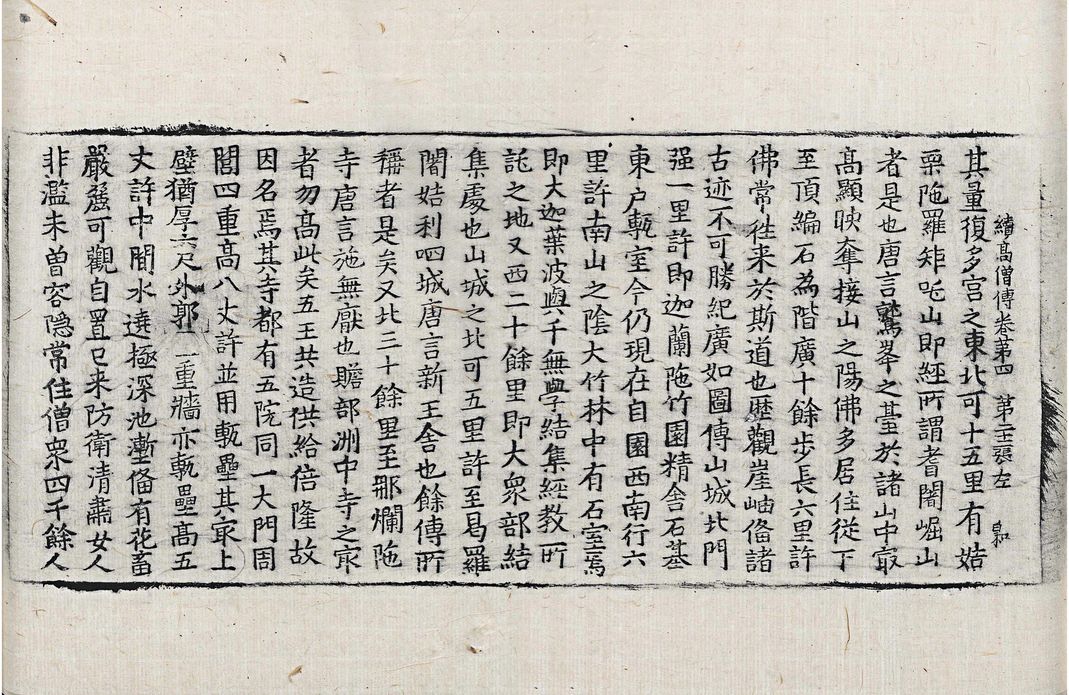 續高僧傳卷第四 第二十張 左
其量復多宮之東北可十五里有姞
栗陁羅矩吒山即經所謂耆闍崛山
者是也唐言鷲峯之臺於諸山中㝡
高顯映奪接山之陽佛多居住從下
至頂編石為階廣十餘步長六里許
佛常往来於斯道也歷觀崖岫俻諸
古迹不可勝紀廣如圖傳山城北門
强一里許即迦蘭陁竹園精舍石基
東户甎室今仍現在自園西南行六
里許南山之陰大竹林中有石室焉
即大迦葉波與千無學結集經教所
託之地又西二十餘里即大衆部結
集處也山城之北可五里許至曷羅
闍姞利呬城唐言新王舍也餘傳所
稱者是矣又北三十餘里至那爛陁
寺唐言施無厭也贍部洲中寺之㝡
者勿高此矣五王共造供給倍隆故
因名焉其寺都有五院同一大門周
閭四重高八丈許並用甎壘其㝡上
壁猶厚六尺外郭一重牆亦甎壘高五
丈許中間水遶極深池壍俻有花畜
嚴麗可觀自置已来防衛清肅女人
非濫未曽容隠常住僧衆四千餘人